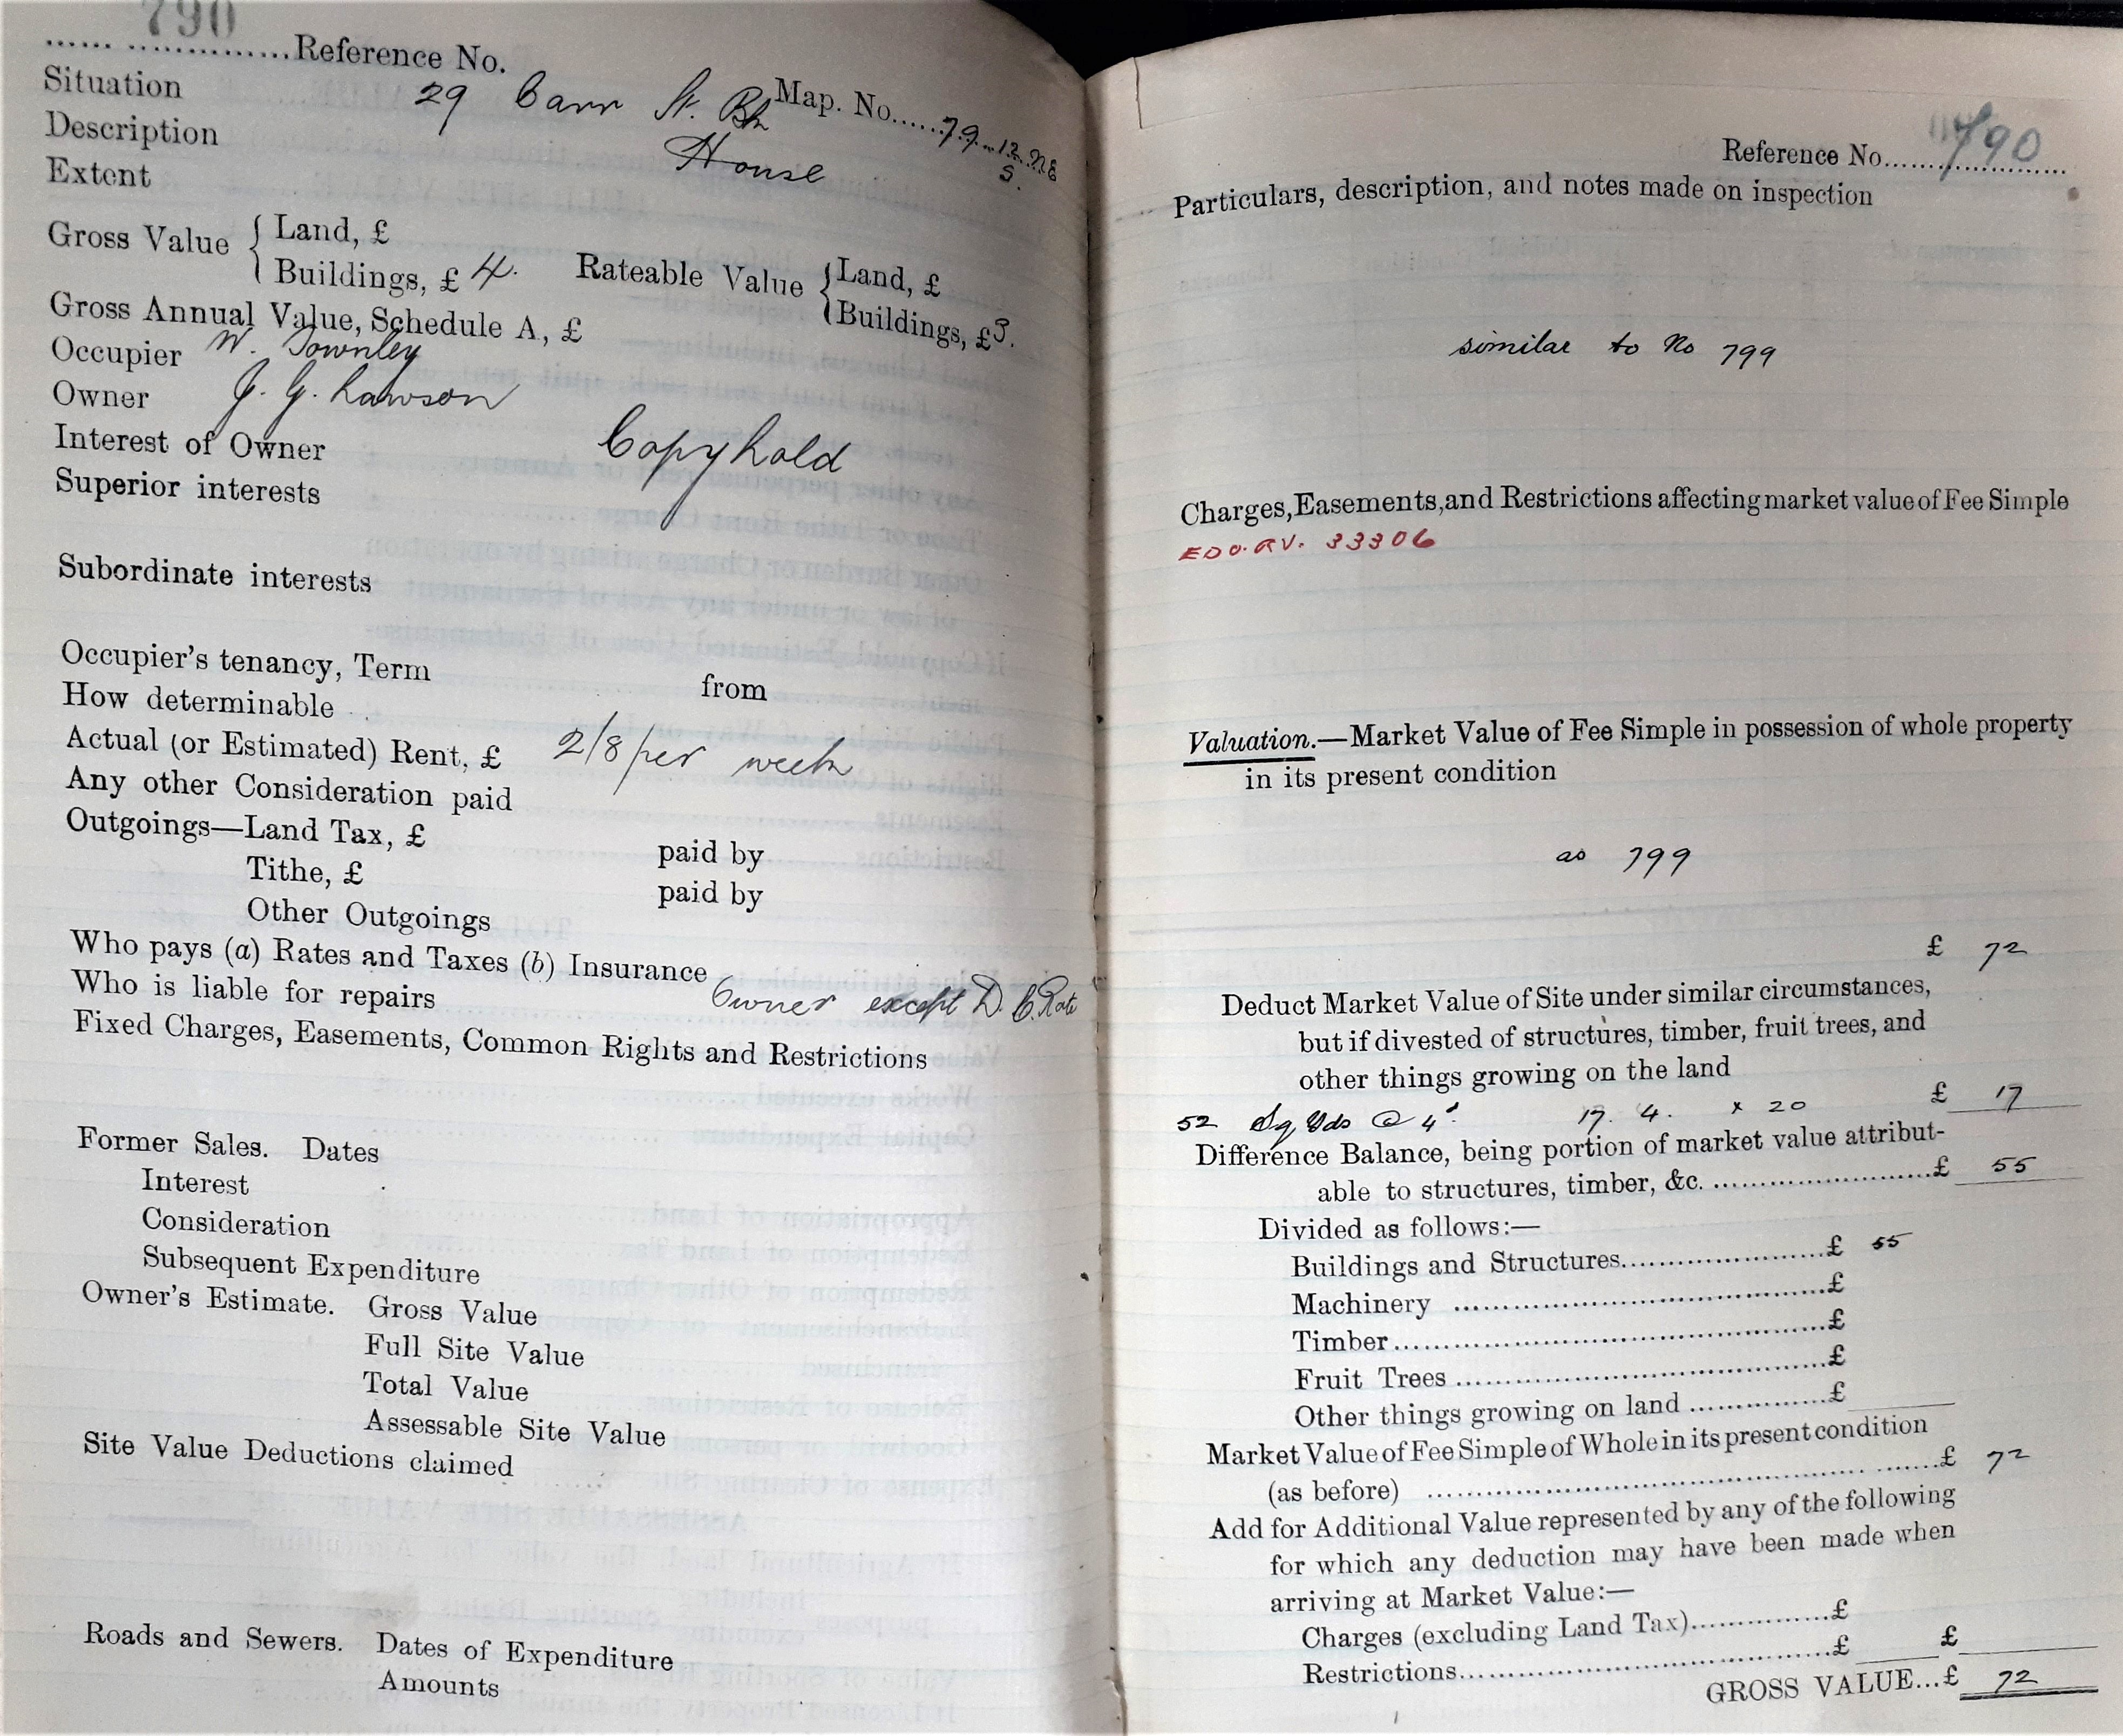 790
...... ..............Reference No.
Map. No......79..12..NE
S.
Situation 29 Carr St. Bk
Description House
Extent
Gross Value { Land, £
Buildings, £ 4. Rateable Value { Land, £
Buildings, £3.
Gross Annual Value, Schedule A, £
Occupier W. Townley
Owner J. G. Lawson
Interest of Owner Copyhold
Superior interests
Subordinate interests
Occupier's tenancy, Term from
How determinable
Actual (or Estimated) Rent, £ 2/8/per week
Any other Consideration paid
Outgoings—Land Tax, £ paid by
Tithe, £ paid by
Other Outgoings
Who pays (a) Rates and Taxes (b) Insurance
Who is liable for repairs Owner except D. C. Rate
Fixed Charges, Easements, Common Rights and Restrictions
Former Sales. Dates
Interest
Consideration
Subsequent Expenditure
Owner's Estimate. Gross Value
Full Site Value
Total Value
Assessable Site Value
Site Value Deductions claimed
Roads and Sewers. Dates of Expenditure
Amounts
Reference No......790
Particulars, description, and notes made on inspection
similar to No 799
Charges, Easements, and Restrictions affecting market value of Fee Simple
EDO. RV. 33306
Valuation.—Market Value of Fee Simple in possession of whole property
in its present condition
as 799
£ 72
Deduct Market Value of Site under similar circumstances,
but if divested of structures, timber, fruit trees, and
other things growing on the land £ 17
52 Sq Yds @ 4d. 17. 4. x 20
Difference Balance, being portion of market value attribut-
able to structures, timber, &c. ..............................£ 55
Divided as follows:—
Buildings and Structures.....................£ 55
Machinery ..........................................£
Timber.................................................£
Fruit Trees ..........................................£
Other things growing on land ...............£
Market Value of Fee Simple of Whole in its present condition
(as before) ..........................................£ 72
Add for Additional Value represented by any of the following
for which any deduction may have been made when
arriving at Market Value:—
Charges (excluding Land Tax)..............£
Restrictions..........................................£ £
GROSS VALUE...£ 72